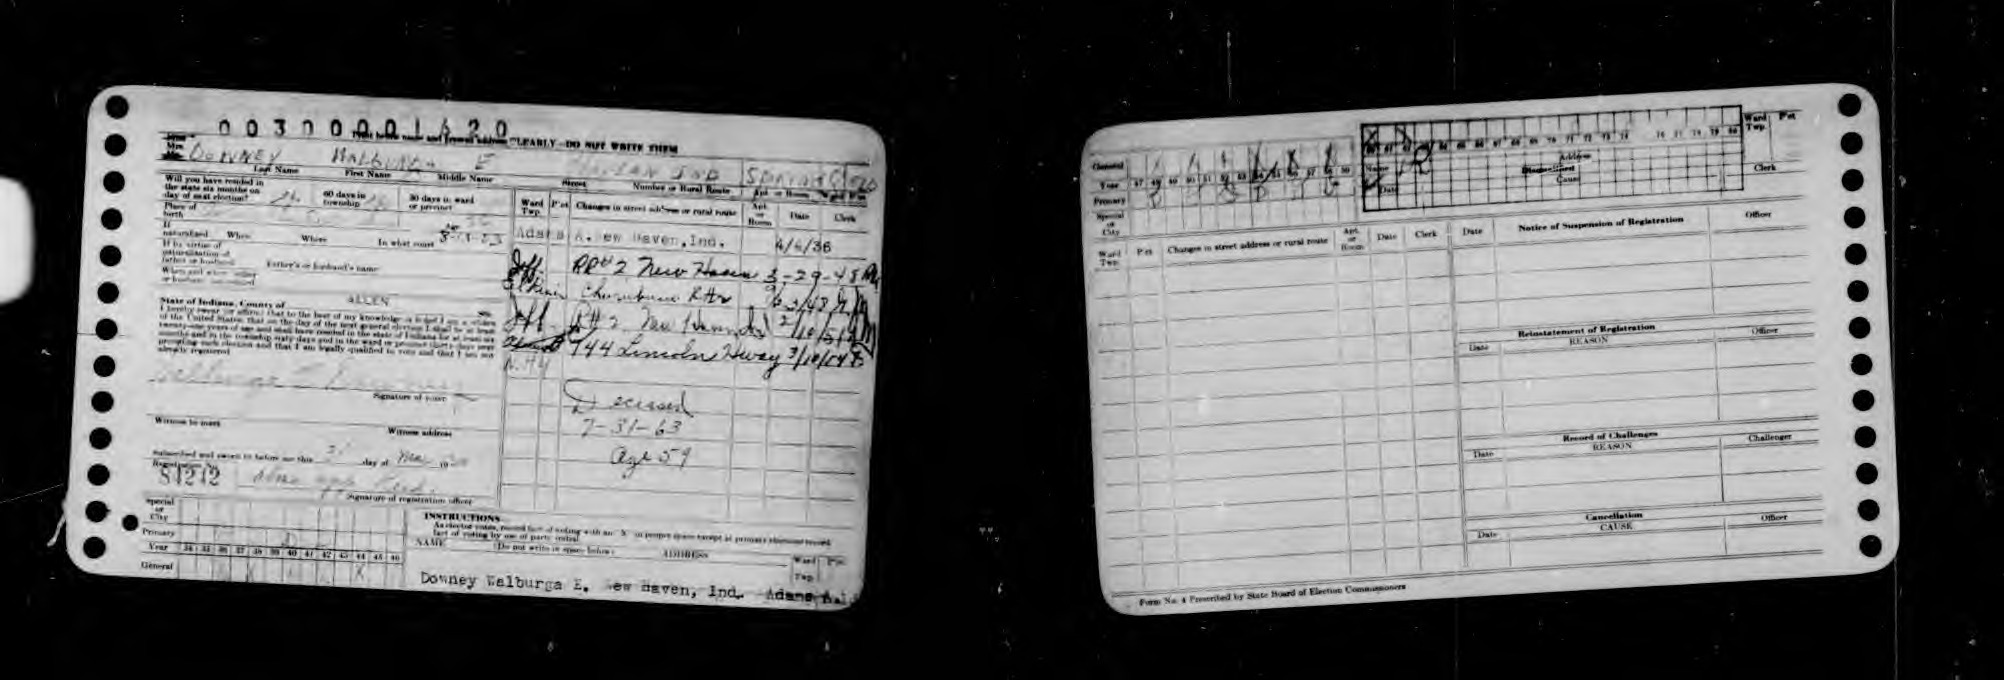 0030001620
Print below name and present address CLEARLY—DO NOT WRITE THEM
Miss
Mrs.
Mr. DOWNEY WALBURGA E HARLAN IND SPRINGFIELD
Last Name First Name Middle Name Street Number or Rural Route Apt. or Room Ward P'ct
Will you have resided in the state six months on day of next election? 60 days in township 30 days in ward or precinct
Place of birth Age
If naturalized When Where In what court
If by virtue of naturalization of father or husband Father's or husband's name
When and where father or husband naturalized
State of Indiana, County of ALLEN ss:
I hereby swear (or affirm) that to the best of my knowledge and belief I am a citizen
of the United States; that on the day of the next general election I shall be at least
twenty-one years of age and shall have resided in the state of Indiana for at least six
months and in the township sixty days and in the ward or precinct thirty days next
preceding such election and that I am legally qualified to vote and that I am not
already registered
Walburga E Downey
Signature of voter
Witness to mark Witness address
Subscribed and sworn to before me this 31 day of Mar 19
Registration No.
84242
Signature of registration officer
Ward Twp. P'ct Changes in street address or rural route Apt. or Room Date Clerk
Adams A. New Haven, Ind. 4/4/36
Jeff. RR#2 New Haven 3-29-48
Churubusco R#2
Jeff R#2 New Haven Ind
744 Lincoln Hway 3/10/54
N.H4
Deceased
7-31-63
Age 59
Special or City
Primary
Year 34 35 36 37 38 39 40 41 42 43 44 45 46
General
INSTRUCTIONS
As elector votes, record fact of voting with an "X" in proper space except at primary elections record
fact of voting by use of party initial.
NAME (Do not write in space below) ADDRESS Ward Twp. P'ct
Downey Walburga E. New Haven, Ind. Adams A.
General
Year 47 48 49 50 51 52 53 54 55 56 57 58 59
Primary
Special or City
Name
Date
Address
Disqualified
Cause
Ward Twp. P'ct
Clerk
Ward Twp. P'ct Changes in street address or rural route Apt. or Room Date Clerk
Date Notice of Suspension of Registration Officer
Reinstatement of Registration
Date REASON Officer
Record of Challenges
Date REASON Challenger
Cancellation
Date CAUSE Officer
Form No. 4 Prescribed by State Board of Election Commissioners